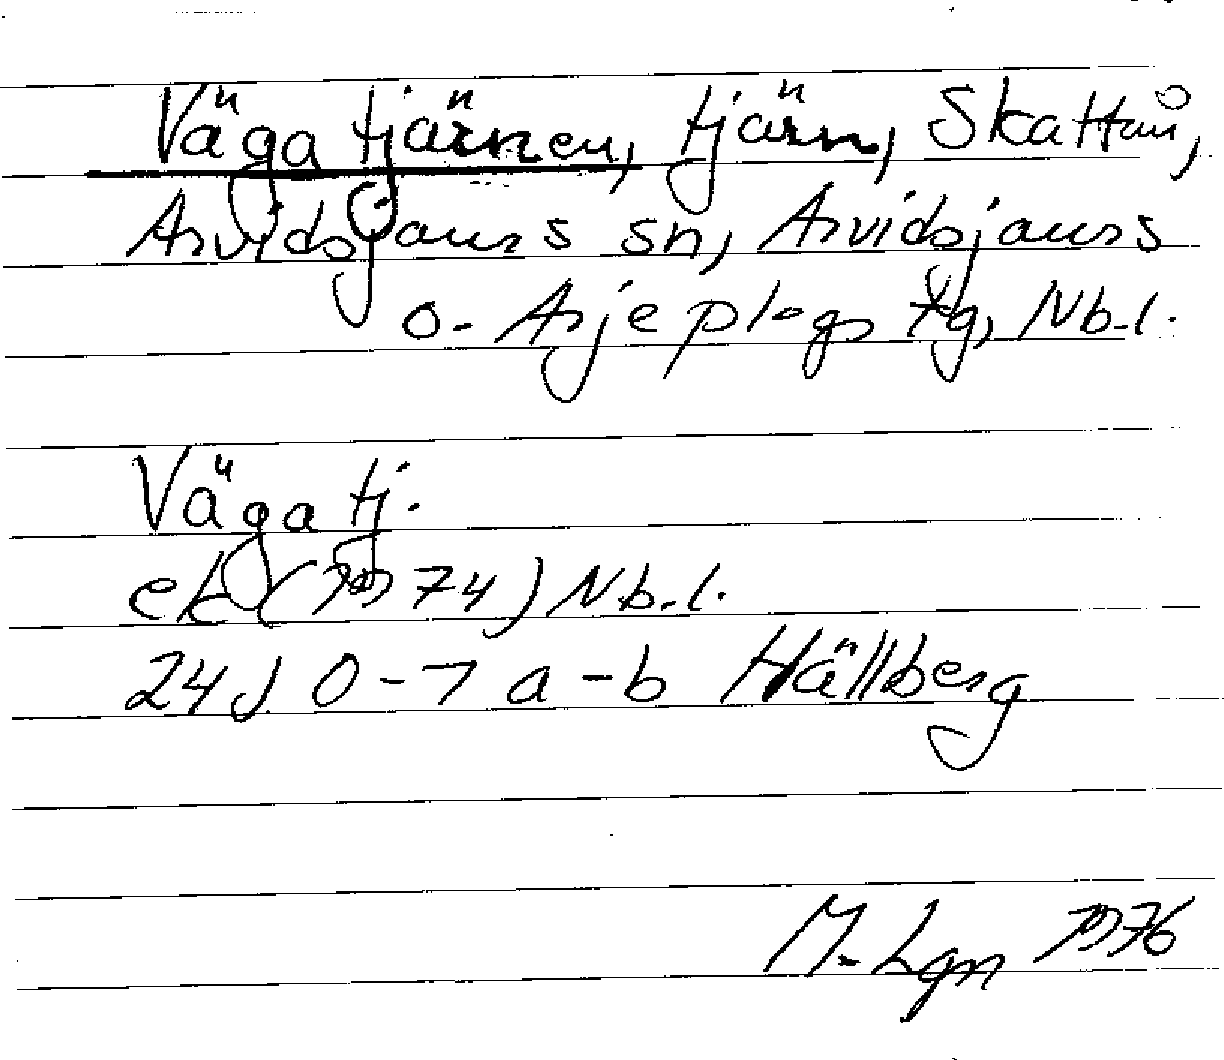 Vägatjärnen, tjärn, Skattau,
Arvidsjaurs sn, Arvidsjaurs
o. Arjeplogs tg, Nb.l.
Vägatj.
ek (1974) Nb.l.
24J 0-7 a-b Hällberg
M. Lgn 1976